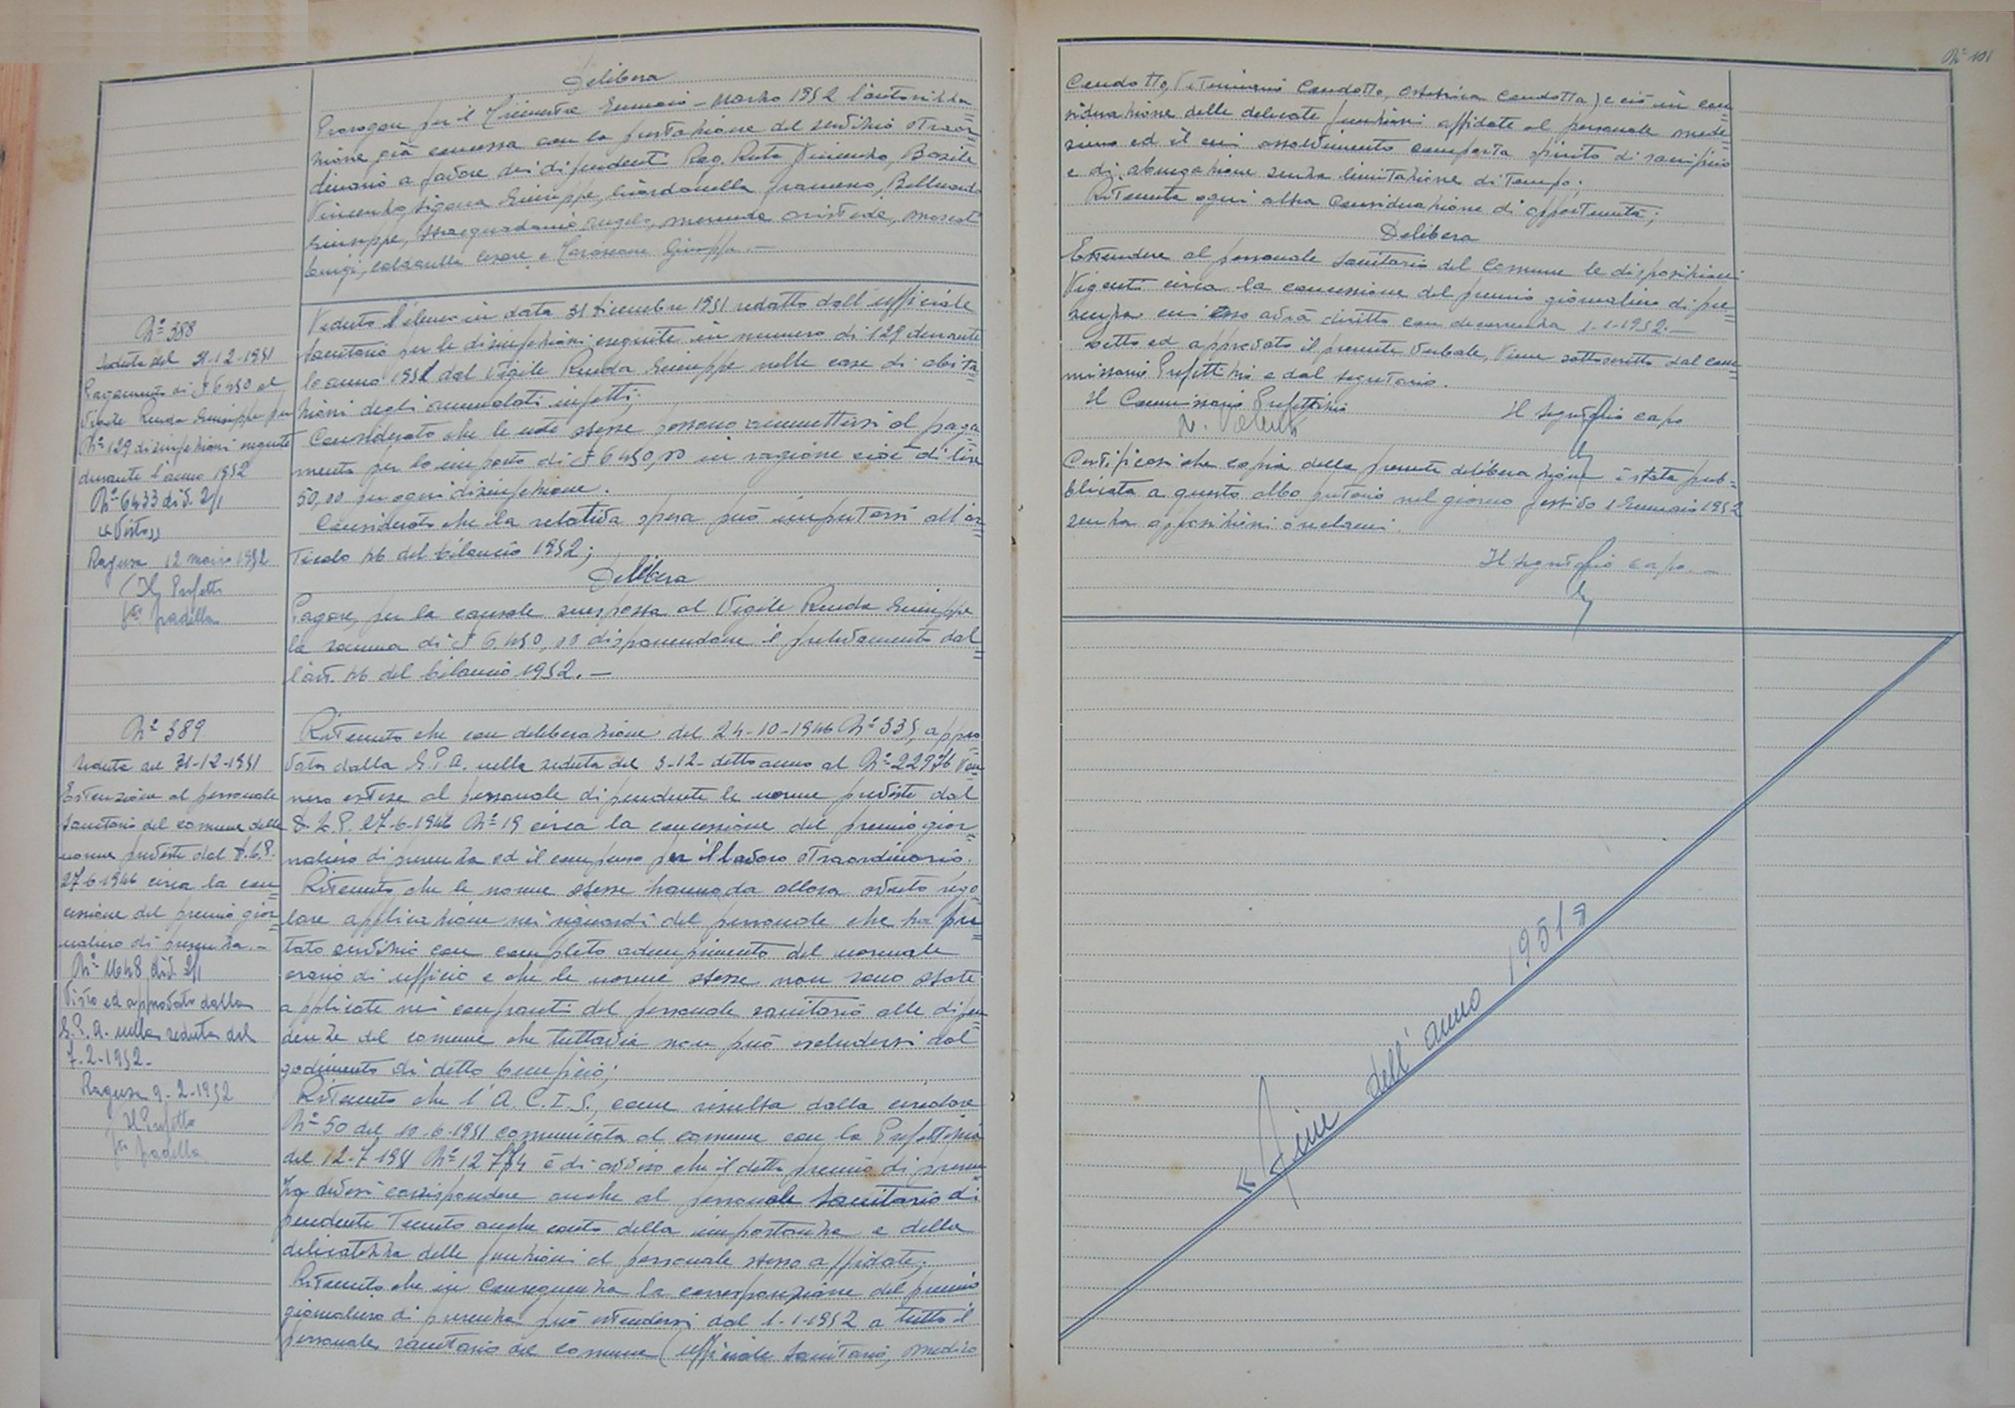 Delibera
Prorogare per il Trimestre Gennaio - Marzo 1952 l'autorizza
zione già concessa con la prestazione del servizio straor=
dinario a favore dei dipendenti Rag. Ruta Vincenzo, Basile
Vincenzo, Giuseppe, Giordanella Francesco, Belluardo
Giuseppe, Angelo, Aristide,
Luigi, Cesare e Giuseppe. —
Nº 388
Seduta del 31-12-1951
Pagamento di £ 6450 al
Vigile Renda Giuseppe per
Nº 129 disinfezioni eseguite
durante l'anno 1952
Nº 6433 div. 2/1
« Visto »
Ragusa 12 1952
Il Prefetto
fto Padilla
Veduto l'elenco in data 31 dicembre 1951 redatto dall'ufficiale
Sanitario per le disinfezioni eseguite in numero di 129 durante
lo anno 1951 dal Vigile Renda Giuseppe nelle case di abita
zioni degli ammalati infetti;
Considerato che le note stesse possono ammettersi al paga
mento per lo importo di £ 6450,00 in ragione cioè di lire
50,00 per ogni disinfezione.
Considerato che la relativa spesa può imputarsi all'ar=
ticolo 46 del bilancio 1952;
Delibera
Pagare, per la causale suespressa al Vigile Renda Giuseppe
la somma di £ 6450,00 disponendone il prelevamento dal=
l'art. 46 del bilancio 1952. —
Nº 389
Seduta del 31-12-1951
Estensione al personale
Sanitario del comune delle
norme previste dal D.L.P.
27-6-1946 circa la con=
cessione del premio gior=
naliero di presenza. —
Nº 1648 div. 2/1
Visto ed approvato dalla
G.P.A. nella seduta del
7-2-1952-
Ragusa 9-2-1952
Il Prefetto
fto Padilla
Ritenuto che con deliberazione del 24-10-1946 Nº 335, appro
vata dalla G.P.A. nella seduta del 5-12- detto anno al Nº 22976 ven
nero estese al personale dipendente le norme previste dal
D.L.P. 27-6-1946 Nº 19 circa la concessione del premio gior=
naliero di presenza ed il compenso per il lavoro straordinario.
Ritenuto che le norme stesse hanno da allora avuto rego
lare applicazione nei riguardi del personale che ha pre=
stato servizio con completo adempimento del normale
orario di ufficio e che le norme stesse non sono state
applicate nei confronti del personale sanitario alle dipen
denze del comune che tuttavia non può escludersi dal
godimento di detto beneficio;
Ritenuto che l'A.C.I.S., come risulta dalla circolare
Nº 50 del 10-6-1951 comunicata al comune con la Prefettizia
del 12-7-1951 Nº 12754 è di avviso che il detto premio di presen
za devesi corrispondere anche al personale Sanitario di
pendente tenuto anche conto della importanza e della
delicatezza delle funzioni al personale stesso affidate;
Ritenuto che in conseguenza la corresponsione del premio
giornaliero di presenza può estendersi dal 1-1-1952 a tutto il
personale sanitario del comune (Ufficiale Sanitario, medico
Nº 101
Condotto, Veterinario Condotto, Ostetrica Condotta) e ciò in con=
siderazione delle delicate funzioni affidate al personale mede=
simo ed il cui assolvimento comporta spirito di sacrificio
e di abnegazione senza limitazione di tempo;
Ritenuta ogni altra considerazione di opportunità;
Delibera
Estendere al personale Sanitario del Comune le disposizioni
Vigenti circa la concessione del premio giornaliero di pre=
senza cui esso avrà diritto con decorrenza 1-1-1952. —
Letto ed approvato il presente Verbale, viene sottoscritto dal com=
missario Prefettizio e dal segretario.
Il Commissario Prefettizio
Il Segretario capo
Certificasi che copia della presente deliberazione è stata pub=
blicata a questo albo pretorio nel giorno festivo 1 Gennaio 1952
senza opposizioni o reclami.
Il Segretario capo. —
« Fine dell'anno 1951 »